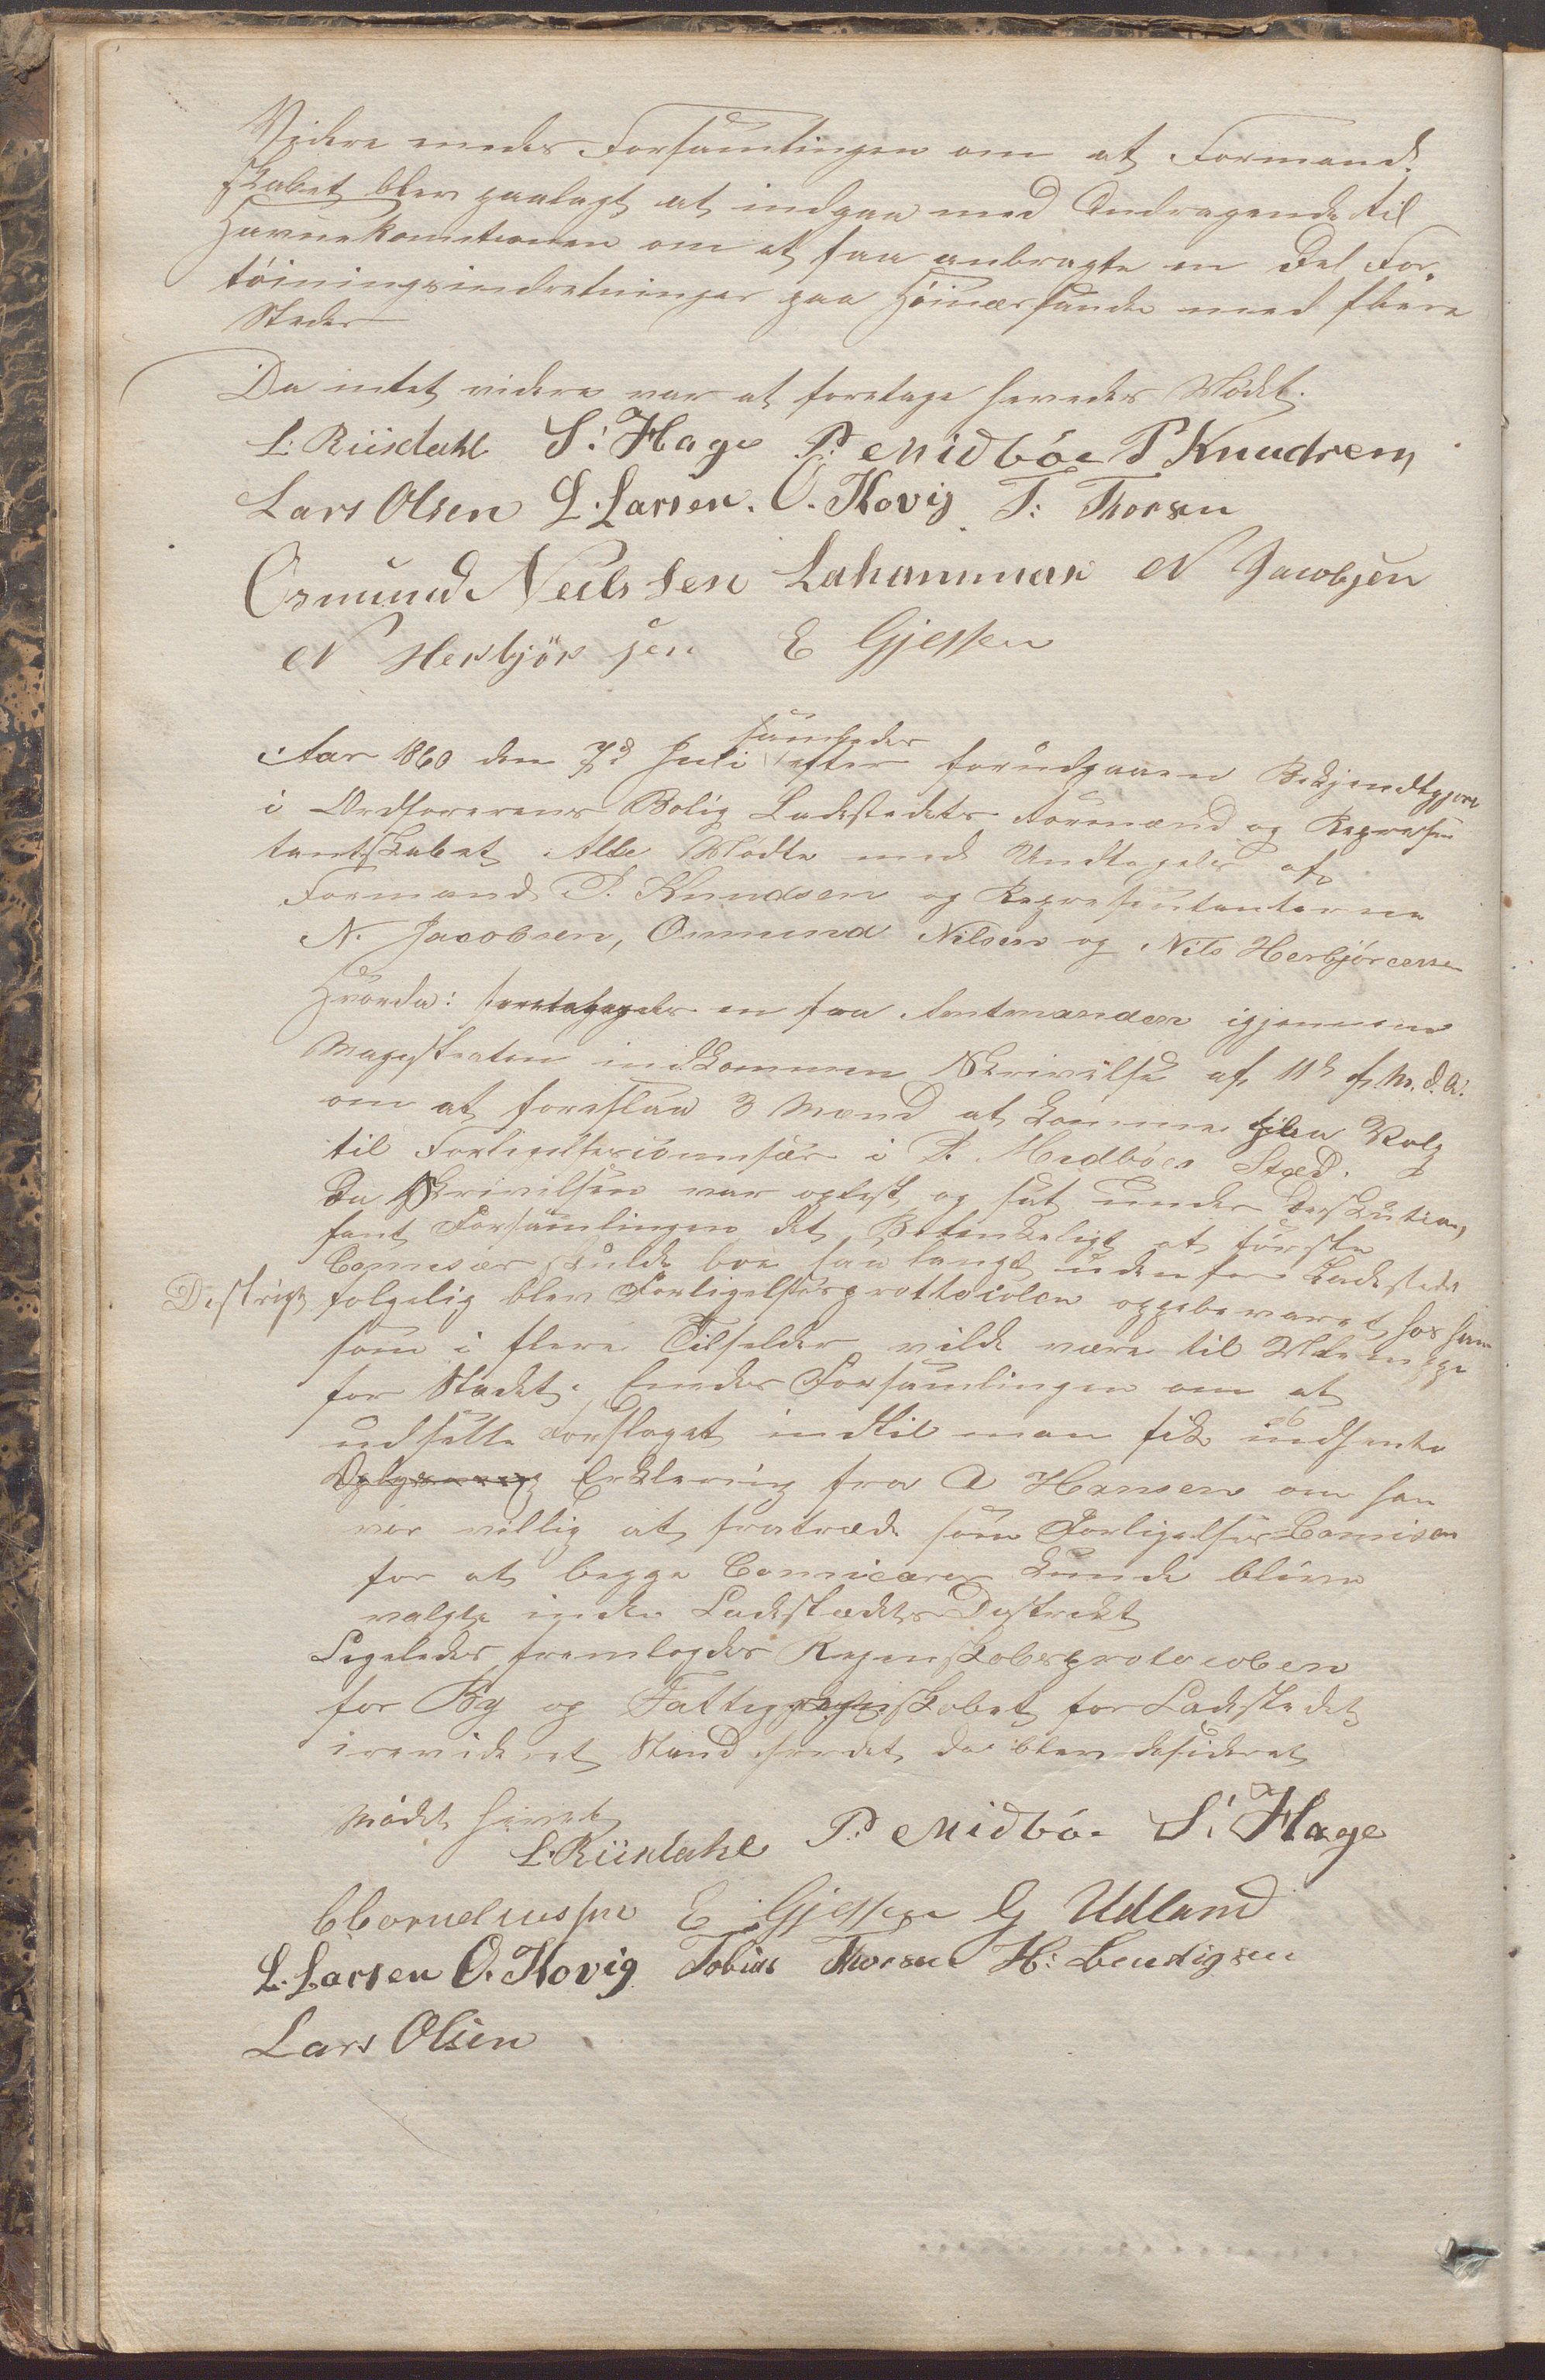 Videre enedes Forsamlingen om at Formand-
skabet blev paalagt at indgaa med Andragende til
Havnekomitionen om at faa anbragte en Del For-
töiningsindretninger paa Höiværsunde med flere
Steder
Da intet videre var at foretage hevedes Mödet.
L. Riisdahl S. Hage P. Midböe P Knudsen,
Lars Olsen L. Larsen. O. Kovig T. Thorsen
Osmund Neelssen Lahammar N Jacobsen
N Herbjörnsen E Gjessen
samledes
Aar 1860 den 7d Juli efter forudgaaen Bekjendtgjöre
i Ordforerens Bolig Ladestedets Formænd og Represen
tantskabet Alle Mödte med Undtagelse af
Formand P. Knudsen og Representanterne
N. Jacobsen, Osmund Nilsen og Nils Herbjörnsen
Hvorda: foretages en fra Amtmanden igjennem
Magistraten indkommen Skrivelse af 11d f. M. d. A.
om at foreslaa 3 Mænd at komme til Valg
til Forligelsescommisær i P. Medböes Sted.
Da Skrivelsen var oplest og sat under Diskution,
fant Forsamlingen det Betenkeligt at förste
Comisær skulde boe saa langt udenfor Ladesteds
Distrigt folgelig blev Forligelsesprottocolen oppebevaret hos ham
som i flere Tilfelder vilde være til Ulempe
for Stedet. Enedes Forsamlingen om at
udsette Forslaget indtil man fik indhente
Oplysning Erklering fra A Hansen om han
var villig at fratræde som Forligelses Comisær
for at begge Comicærer kunde blive
valgte inden Ladestedets Distrekt
Ligeledes fremlagdes Regenskabsprotocolen
for By og Fattigregenskabet for Ladestedet
i revideret Stand hvordet da blev desideret
Mödet hevet
L. Riisdahl P. Midböe S. Hage
C Corneliussen E Gjessen G Udland
L. Larsen O. Kovig Tobias Thorsen H: Bendigsen
Lars Olsen